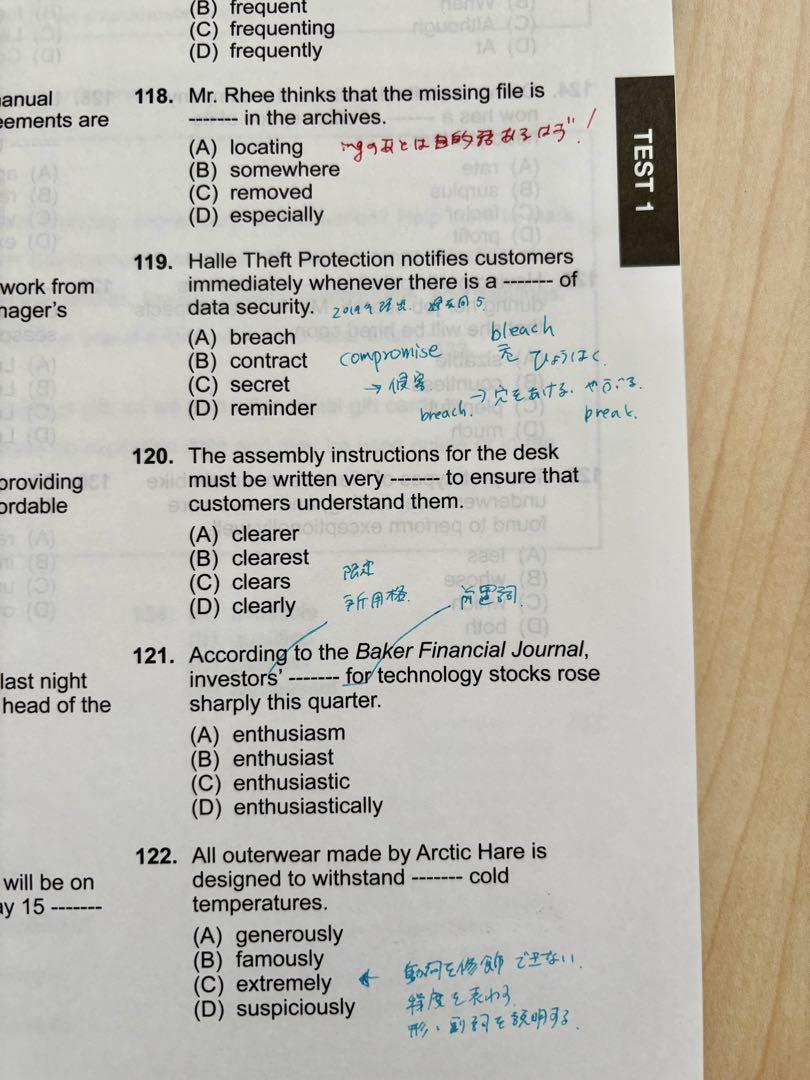 (B) frequent
(C) frequenting
(D) frequently
anual
eements are
work from
nager's
providing
ordable
last night
head of the
will be on
ay 15 -------
118. Mr. Rhee thinks that the missing file is
------- in the archives.
(A) locating
ingのあとは目的語あるはず!
(B) somewhere
(C) removed
(D) especially
119. Halle Theft Protection notifies customers
immediately whenever there is a ------- of
data security.
(A) breach
bleach
(B) contract
compromise
ひょうはく
(C) secret
→侵害
→穴をあける、やぶる
(D) reminder
breach.
break.
120. The assembly instructions for the desk
must be written very ------- to ensure that
customers understand them.
(A) clearer
(B) clearest
(C) clears
限定
(D) clearly
所用格
前置詞
121. According to the Baker Financial Journal,
investors' ------- for technology stocks rose
sharply this quarter.
(A) enthusiasm
(B) enthusiast
(C) enthusiastic
(D) enthusiastically
122. All outerwear made by Arctic Hare is
designed to withstand ------- cold
temperatures.
(A) generously
(B) famously
(C) extremely
← 動詞を修飾できない
(D) suspiciously
程度を表わす
形、副詞を説明する
TEST 1